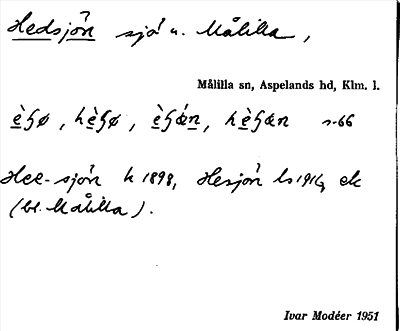 Hedsjön sjö n. Målilla,
Målilla sn, Aspelands hd, Klm. l.
Hee-sjön k 1898, Hesjön ls 1916, ek
(bl. Målilla).
Ivar Modéer 1951